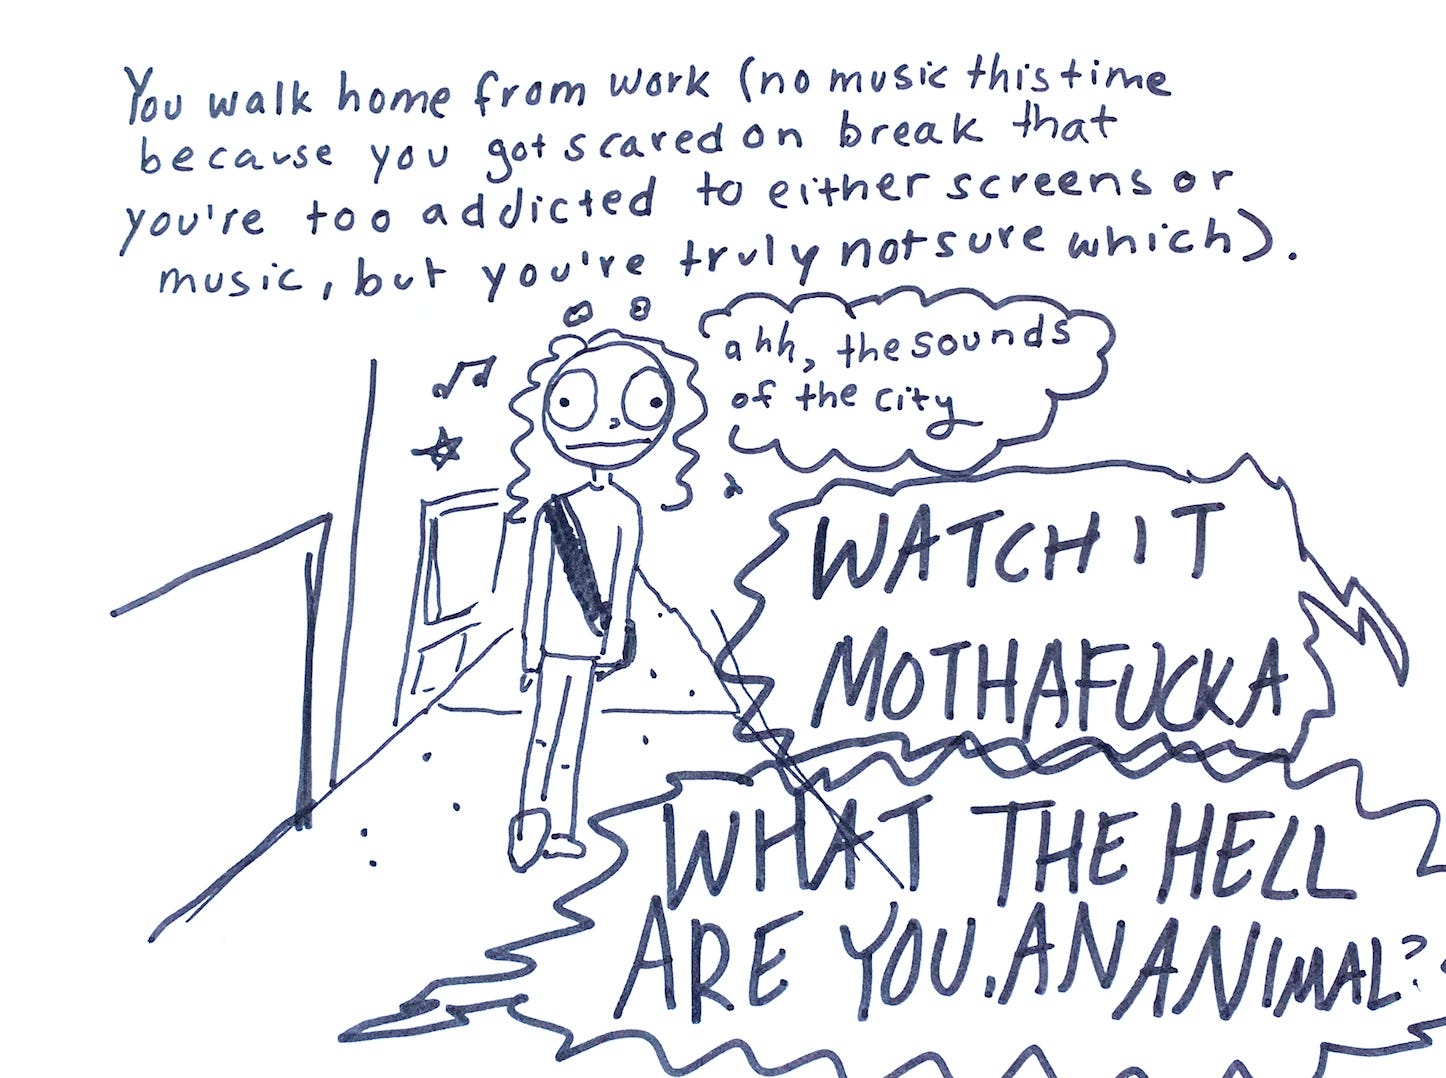 You walk home from work (no music this time
because you got scared on break that
you're too addicted to either screens or
music, but you're truly not sure which).
ahh, the sounds
of the city
WATCH IT
MOTHAFUCKA
WHAT THE HELL
ARE YOU, AN ANIMAL?